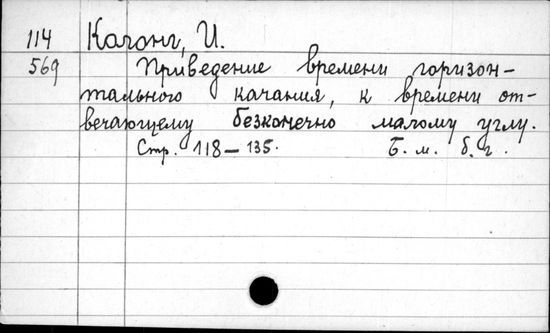 114 Калонг, И.
569 Приведение времени горизон-
тального качания, к времени от-
вечающему безконечно малому углу.
Стр. 118-135. Б. м. б. г.